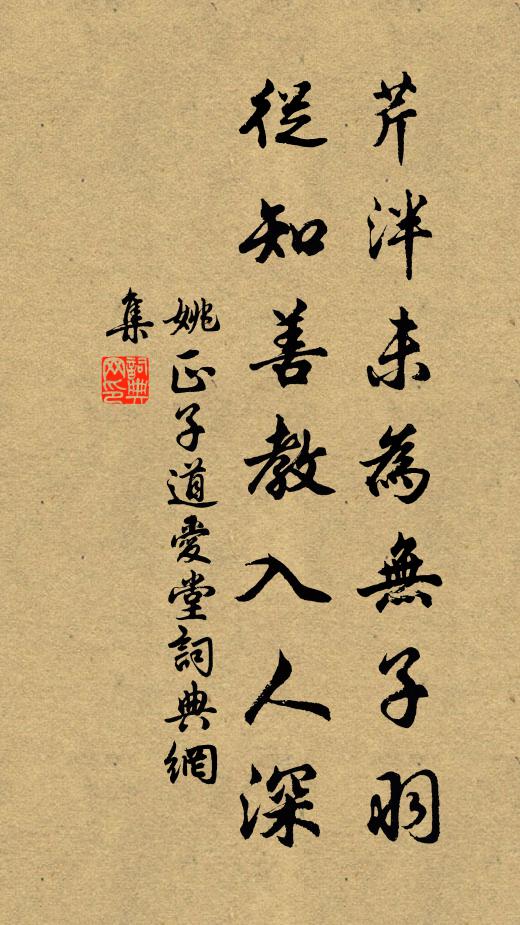 芹泮未為無子羽
從知善教入人深
姚正子道愛堂詞典網
集
詞典
网印